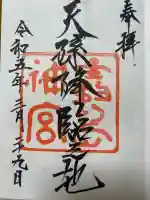 奉拝
天孫降臨之地
霧島
神宮
令和五年三月二十九日